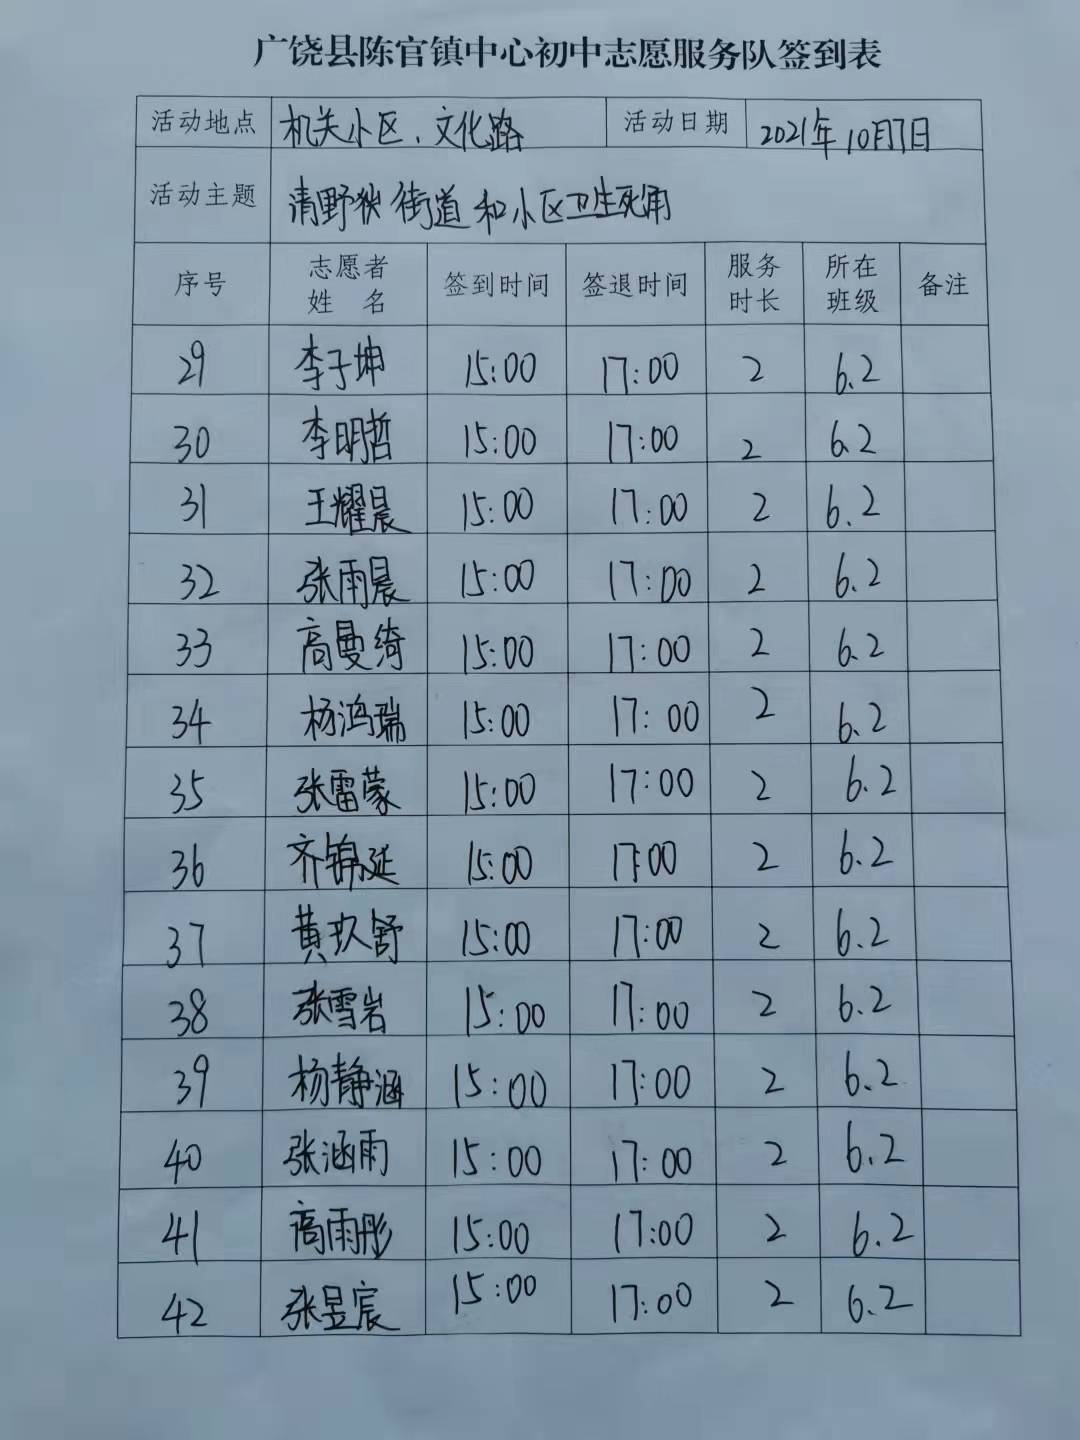 广饶县陈官镇中心初中志愿服务队签到表
活动地点 机关小区、文化路 活动日期 2021年10月7日
活动主题 清野狄街道和小区卫生死角
序号 志愿者姓 名 签到时间 签退时间 服务时长 所在班级 备注
29 李子坤 15:00 17:00 2 6.2
30 李明哲 15:00 17:00 2 6.2
31 王耀晨 15:00 17:00 2 6.2
32 张雨晨 15:00 17:00 2 6.2
33 高曼绮 15:00 17:00 2 6.2
34 杨鸿瑞 15:00 17:00 2 6.2
35 张雷蒙 15:00 17:00 2 6.2
36 齐锦延 15:00 17:00 2 6.2
37 黄玖舒 15:00 17:00 2 6.2
38 张雪岩 15:00 17:00 2 6.2
39 杨静涵 15:00 17:00 2 6.2
40 张涵雨 15:00 17:00 2 6.2
41 高雨彤 15:00 17:00 2 6.2
42 张昱宸 15:00 17:00 2 6.2